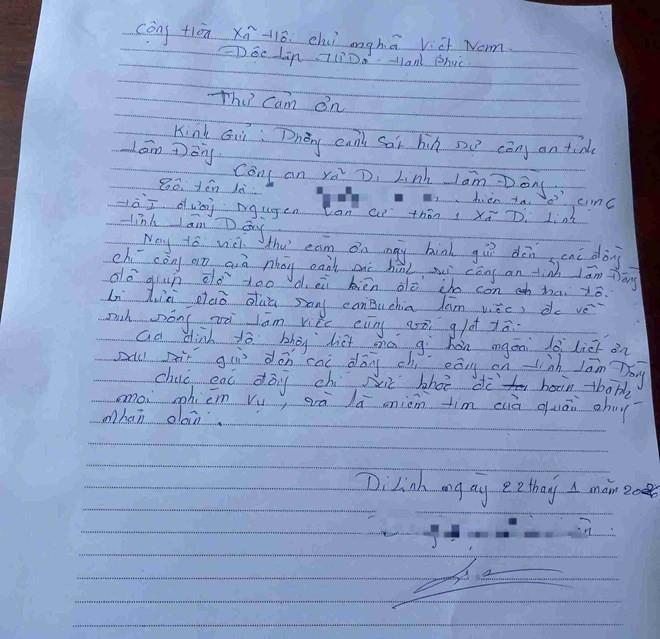 Cộng Hòa Xã Hội chủ nghĩa Việt Nam.
Độc lập - Tự Do - Hạnh Phúc.
Thư Cảm ơn
Kính Gửi: Phòng cảnh sát hình sự công an tỉnh
Lâm Đồng.
Công an xã Di Linh Lâm Đồng.
Tôi tên là. hiện tại ở
tổ J đường Nguyen Van cừ thôn 1 xã Di Linh
tỉnh Lâm Đồng
Nay tô viết thư cảm ơn này kính gửi đến các đồng
chí công an và phòng cảnh sác hình sự công an tỉnh Lâm Đồng
đã giúp đỡ tạo điều kiện để cho con trai tô.
bị lừa đảo đưa sang canBuchia làm việc, đc về
sinh sống và làm việc cùng với g/đt tô.
Gia đình tô không biết nói gì hơn ngoài lồ biết ơn
sâu sắc gửi đến các đồng chí công an tỉnh Lâm Đồng
chúc các đồng chí sức khỏe để hoàn thành
mọi nhiêm vụ, và là niềm tim của quần chúng
nhân dân.
Di Linh ngày 22 tháng 1 năm 2026